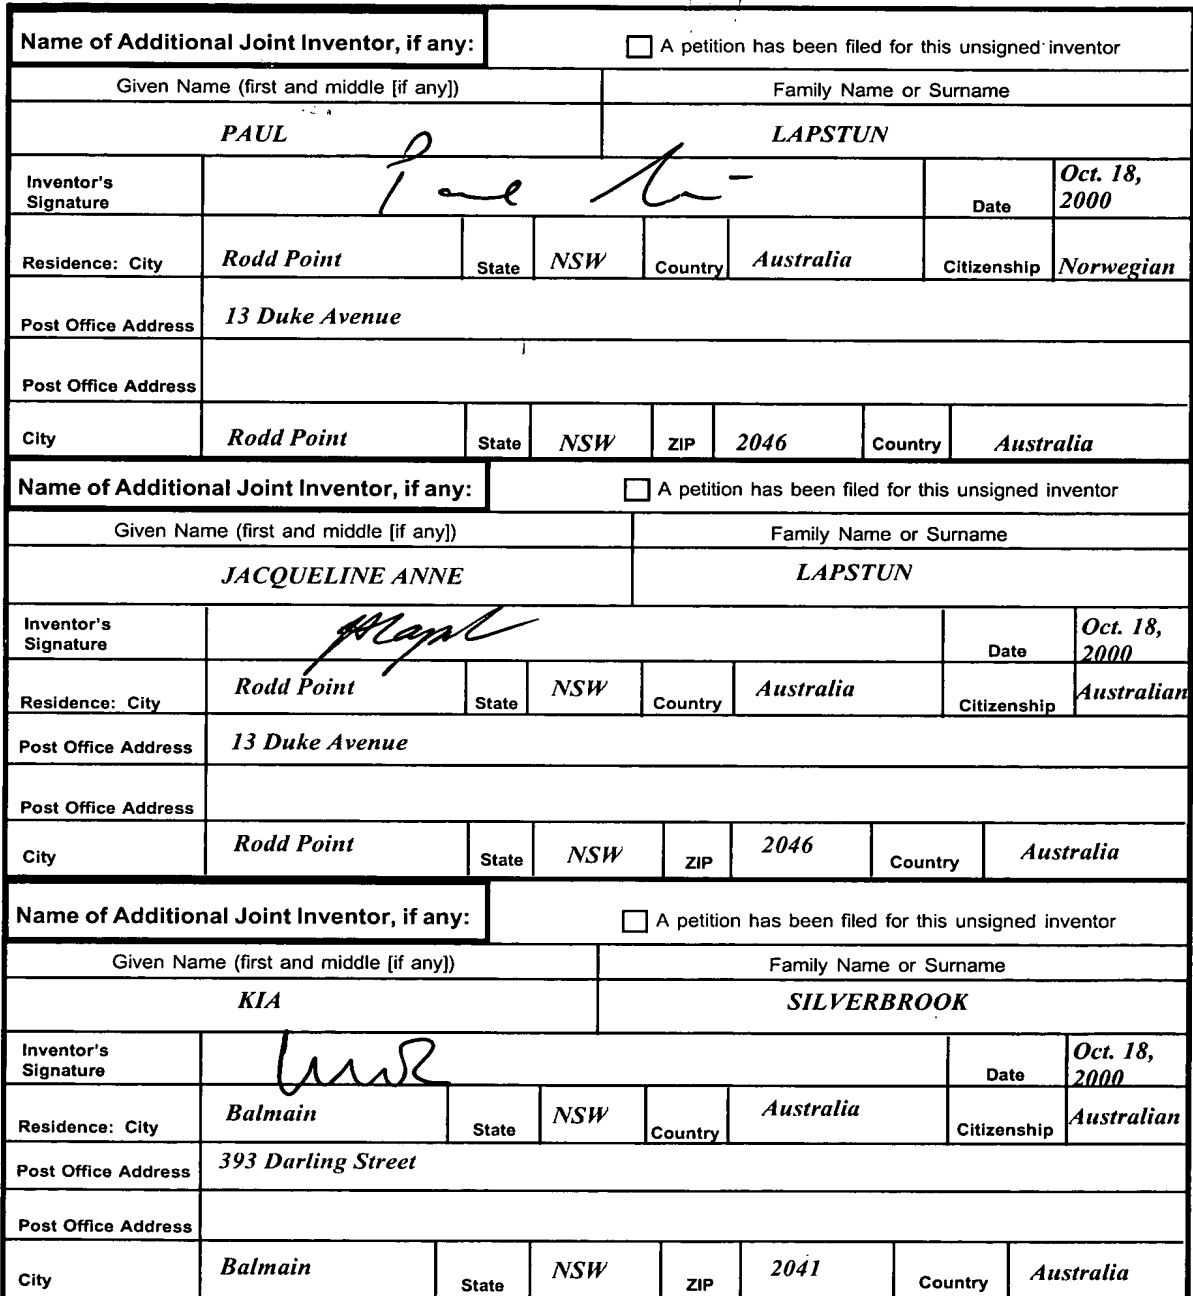 Name of Additional Joint Inventor, if any: A petition has been filed for this unsigned inventor
Given Name (first and middle [if any]) Family Name or Surname
PAUL LAPSTUN
Inventor's Signature Date Oct. 18, 2000
Residence: City Rodd Point State NSW Country Australia Citizenship Norwegian
Post Office Address 13 Duke Avenue
Post Office Address
City Rodd Point State NSW ZIP 2046 Country Australia
Name of Additional Joint Inventor, if any: A petition has been filed for this unsigned inventor
Given Name (first and middle [if any]) Family Name or Surname
JACQUELINE ANNE LAPSTUN
Inventor's Signature Date Oct. 18, 2000
Residence: City Rodd Point State NSW Country Australia Citizenship Australian
Post Office Address 13 Duke Avenue
Post Office Address
City Rodd Point State NSW ZIP 2046 Country Australia
Name of Additional Joint Inventor, if any: A petition has been filed for this unsigned inventor
Given Name (first and middle [if any]) Family Name or Surname
KIA SILVERBROOK
Inventor's Signature Date Oct. 18, 2000
Residence: City Balmain State NSW Country Australia Citizenship Australian
Post Office Address 393 Darling Street
Post Office Address
City Balmain State NSW ZIP 2041 Country Australia